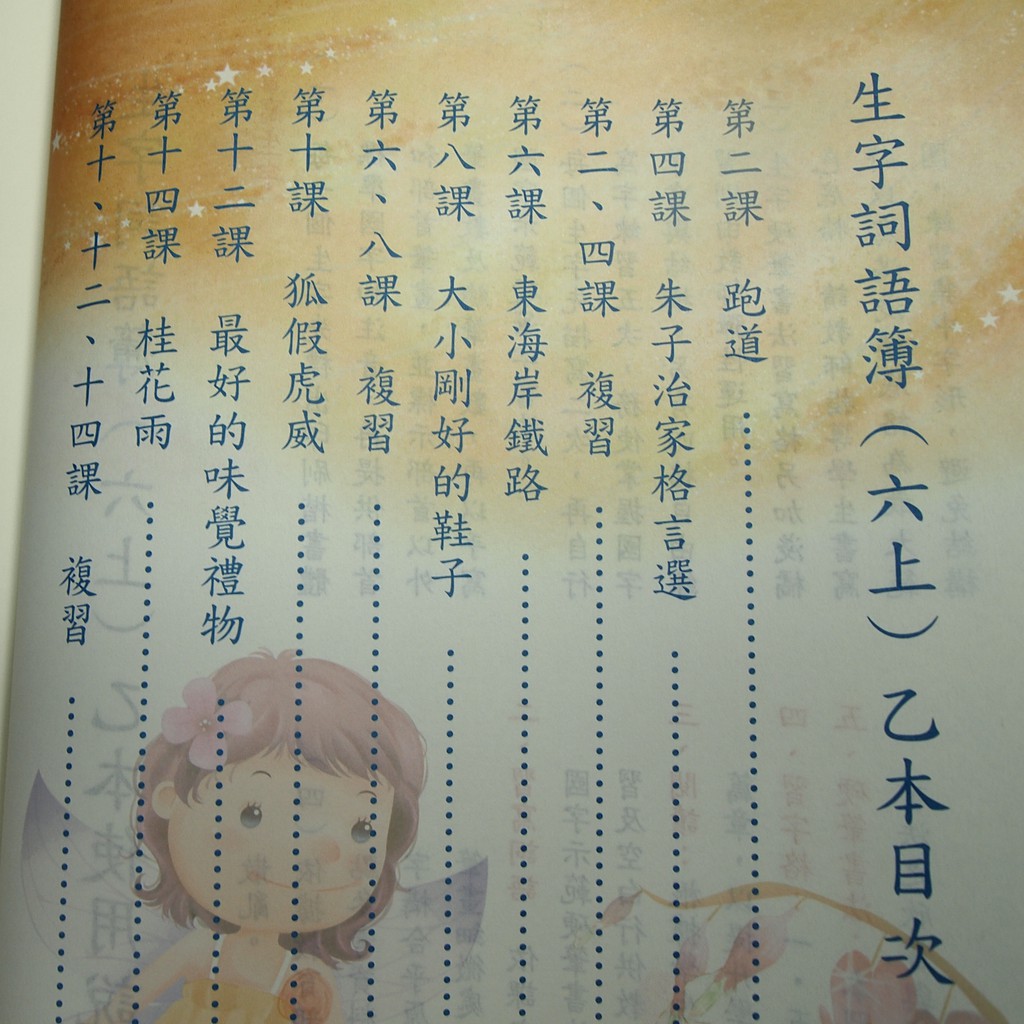 生字詞語簿（六上）乙本目次
第二課 跑道
第四課 朱子治家格言選
第二、四課 複習
第六課 東海岸鐵路
第八課 大小剛好的鞋子
第六、八課 複習
第十課 狐假虎威
第十二課 最好的味覺禮物
第十四課 桂花雨
第十、十二、十四課 複習